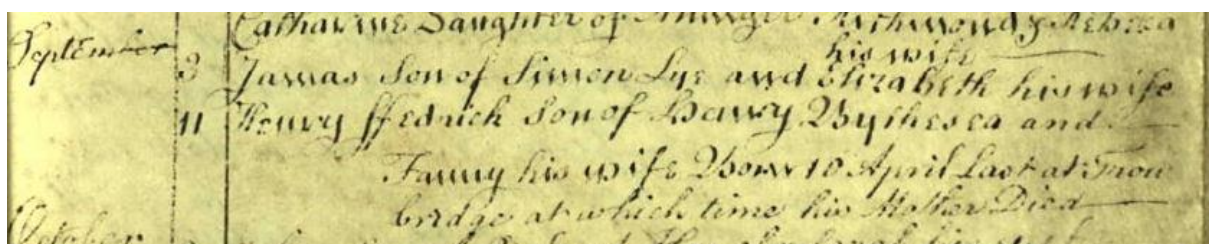 Catharine Daughter of Richmond &
his wife
September 3 James Son of Simon Lye and Elizabeth his wife
11 Henry ffedrick Son of Henry Bythesea and
Fanny his wife Born 10 April Last at Trow
bridge at which time his Mother Died
October